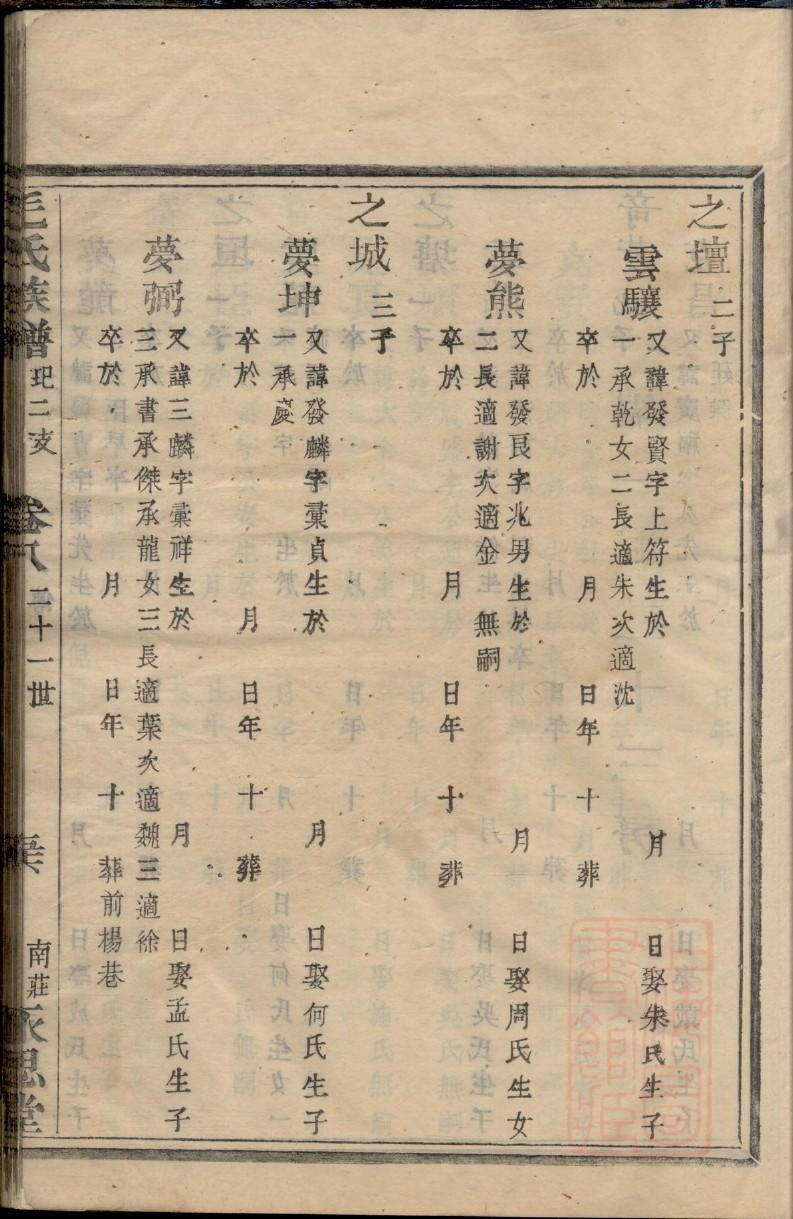 之壇 二子
雲驤 又諱發賢字上符生於 月 日娶朱氏生子
一承乾女二長適朱次適沈
卒於 月 日年 十 葬
夢熊 又諱發艮字兆男生於 月 日娶周氏生女
二長適謝次適金 無嗣
卒於 月 日年 十 葬
之城 三子
夢坤 又諱發麟字彙貞生於 月 日娶何氏生子
一承慶
卒於 月 日年 十 葬
夢弼 又諱三麟字彙祥生於 月 日娶孟氏生子
三承書承傑承龍女三長適葉次適魏三適徐
卒於 月 日年 十 葬前楊巷
毛氏族譜 玘二支 卷八 二十一世 南莊 永思堂